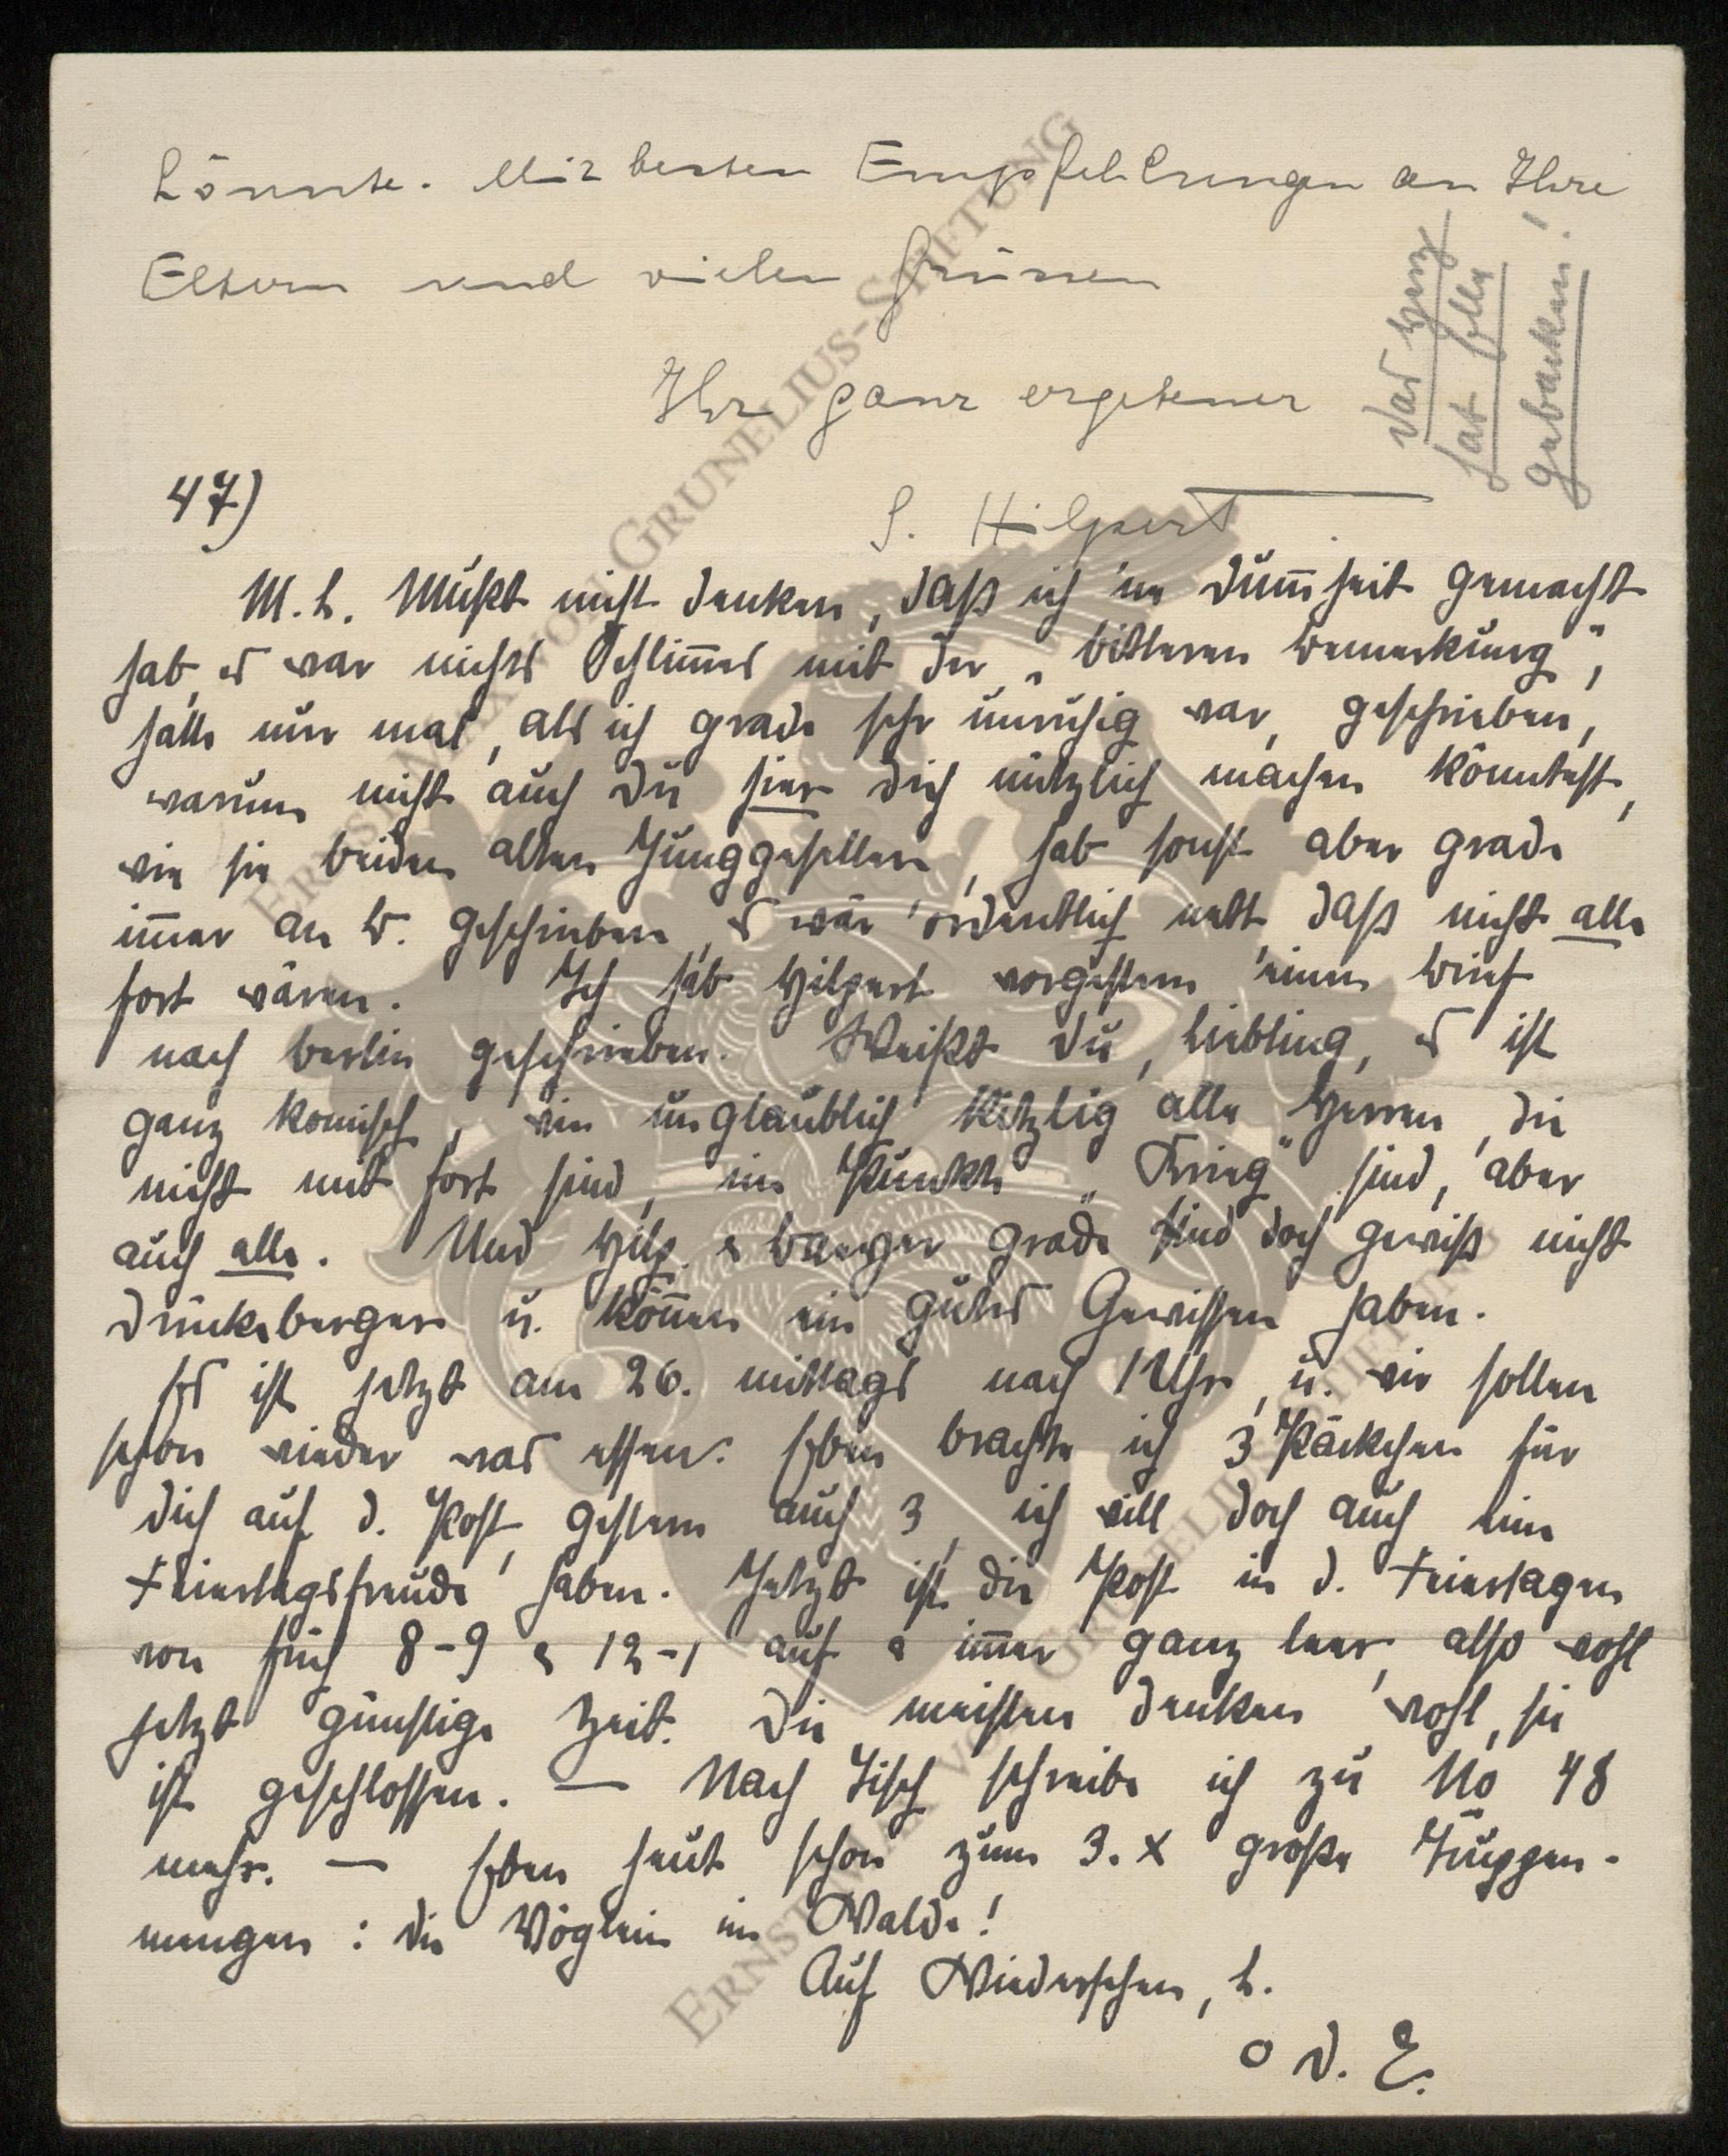 könnte. Mit besten Empfehlungen an Ihre
Eltern und vielen Grüssen
Ihr ganz ergebener
S. Hilpert
Das Herz
hat Ella
gebacken!
47)
M. L. Mußt nicht denken, daß ich 'ne Dum̅heit gemacht
hab, es war nichts Schlim̅es mit der „bitteren Bemerkung",
hatte nur mal, als ich grade sehr unruhig war, geschrieben,
warum nicht auch Du hier Dich nützlich machen könntest,
wie die beiden alten Junggesellen, hab sonst aber grade
im̅er an B. geschrieben, es wär ordentlich nett daß nicht alle
fort wären. Ich hab Hilpert vorgestern einen Brief
nach Berlin geschrieben. Weißt Du, Liebling, es ist
ganz komisch, wie unglaublich kitzlig alle Herren, die
nicht mit fort sind, im Punkte „Krieg" sind, aber
auch alle. Und Hilp. & grade sind doch gewiß nicht
Drückeberger u. kön̅en ein gutes Gewissen haben.
Es ist jetzt am 26. mittags nach 1 Uhr, u. wir sollen
schon wieder was essen. Eben brachte ich 3 Päckchen für
Dich auf d. Post, gestern auch 3, ich will doch auch eine
Feiertagsfreude haben. Jetzt ist die Post in d. Feiertagen
von früh 8-9 & 12-1 auf & im̅er ganz leer, also wohl
jetzt günstige Zeit. Die meisten denken wohl, sie
ist geschlossen. — Nach Tisch schreibe ich zu No 48
mehr. — Eben heut schon zum 3. x große Truppen-
mengen: die Vöglein im Walde!
Auf Wiedersehen, L.
o D. E.
ERNST MAX VON GRUNELIUS-STIFTUNG
ERNST MAX VON GRUNELIUS-STIFTUNG